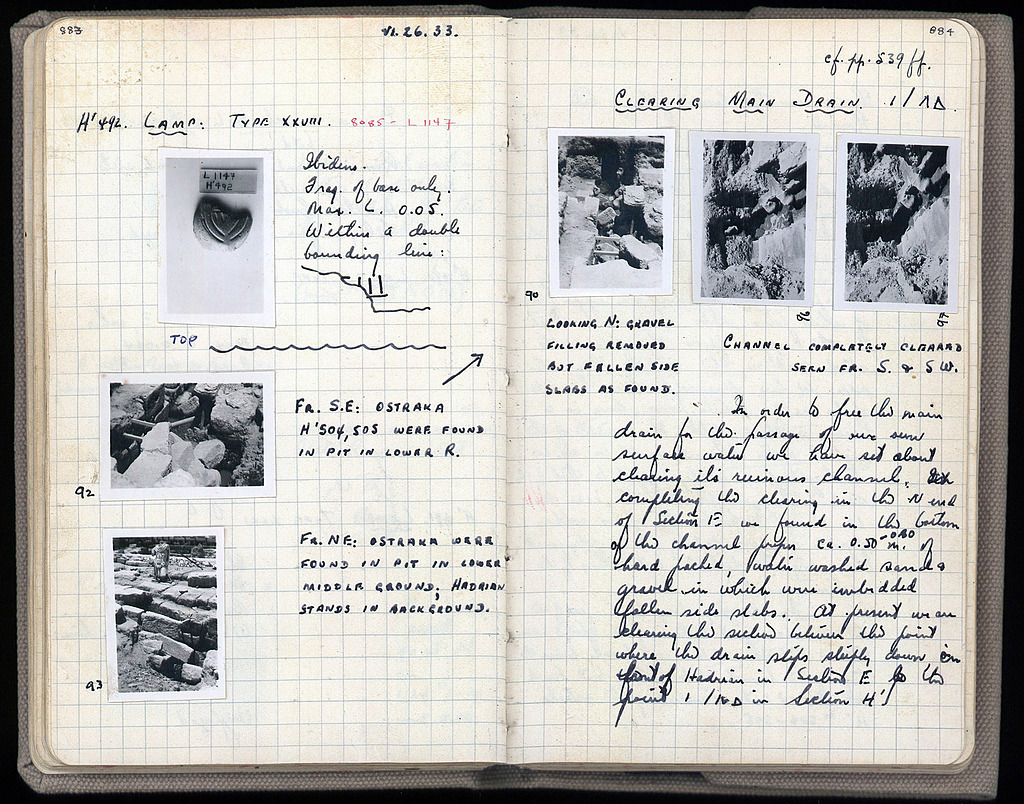 883
VI. 26. 33.
H'492. LAMP: TYPE XXVIII. 8085 - L 1147
L 1147
H'492
Ibidem.
Frag. of base only.
Max. L. 0.05.
Within a double
bounding line:
TOP
92
FR. S.E: OSTRAKA
H'504, 505 WERE FOUND
IN PIT IN LOWER R.
93
FR. NE: OSTRAKA WERE
FOUND IN PIT IN LOWER
MIDDLE GROUND; HADRIAN
STANDS IN BACKGROUND.
884
cf. pp. 539 ff.
CLEARING MAIN DRAIN. 1/ΛΔ.
90
LOOKING N: GRAVEL
FILLING REMOVED
BUT FALLEN SIDE
SLABS AS FOUND.
96
97
CHANNEL COMPLETELY CLEARED
SEEN FR. S. & SW.
In order to free the main
drain for the passage of our own
surface water we have set about
clearing its ruinous channel. In
completing the clearing in the N end
of Section E we found in the bottom
of the channel ca. 0.50 - 0.80 m. of
hard packed, water washed sand &
gravel in which were imbedded
fallen side slabs. At present we are
clearing the section between the point
where the drain slips steeply down in
front of Hadrian in Section E to the
point 1/ΛΔ in Section H'